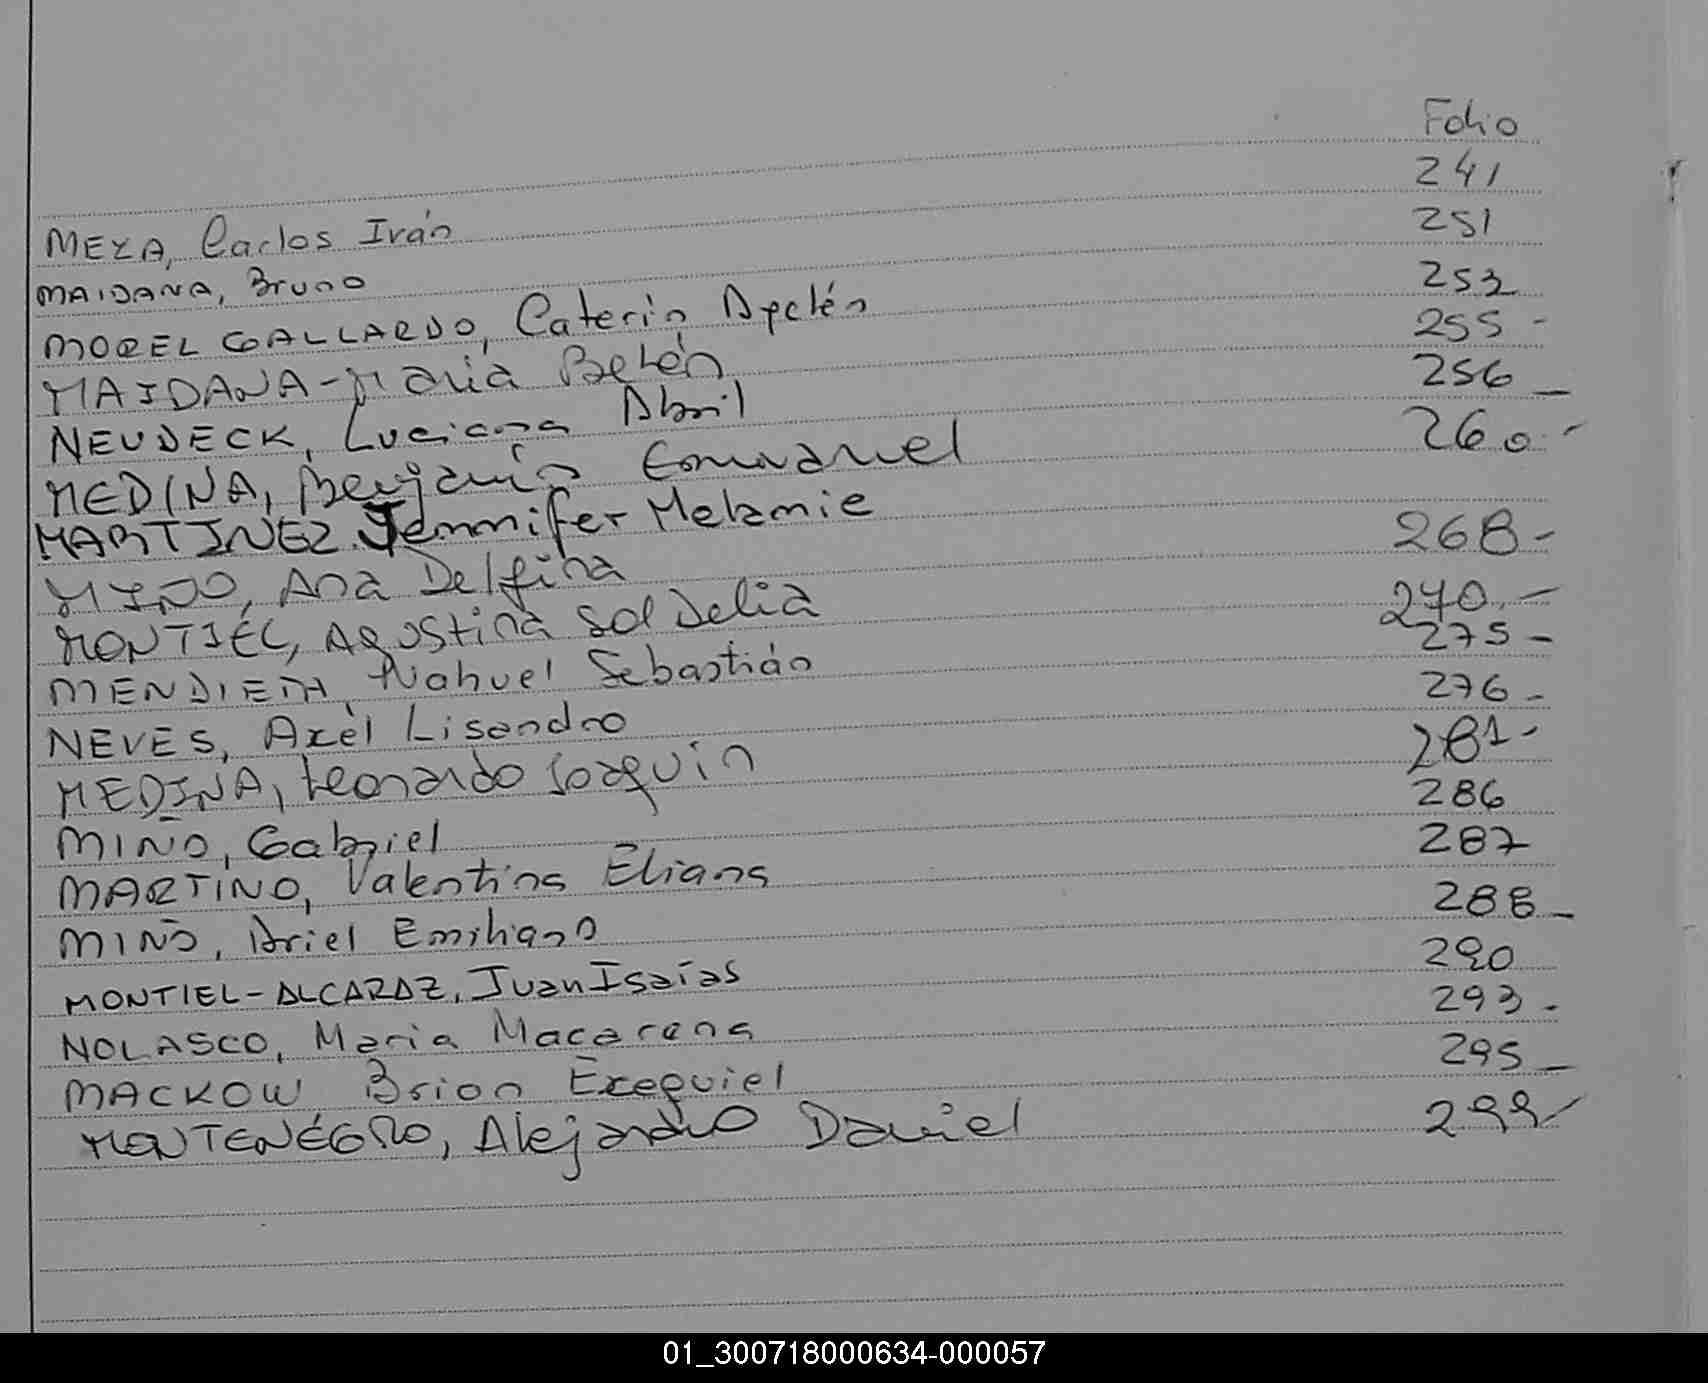 Folio
MEZA, Carlos Iván 241
MAIDANA, Bruno 251
MOREL GALLARDO, Caterin Ayelén 253
MAIDANA - María Belén 255 -
NEUDECK, Luciana Abril 256 -
MEDINA, Benjamín Emmanuel 260.-
MARTINEZ. Jennifer Melanie
MIÑO, Ana Delfina 268-
MONTIEL, Agustina Sol Delia 270.-
MENDIETA Nahuel Sebastián 275 -
NEVES, Axel Lisandro 276 -
MEDINA, Leonardo Joaquín 281-
MIÑO, Gabriel 286
MARTINO, Valentina Eliana 287
MIÑO, Ariel Emiliano 288 -
MONTIEL-ALCARAZ, Juan Isaías 290
NOLASCO, María Macarena 293 -
MACKOW Brian Exequiel 295 -
MONTENEGRO, Alejandro Daniel 299-
01_300718000634-000057